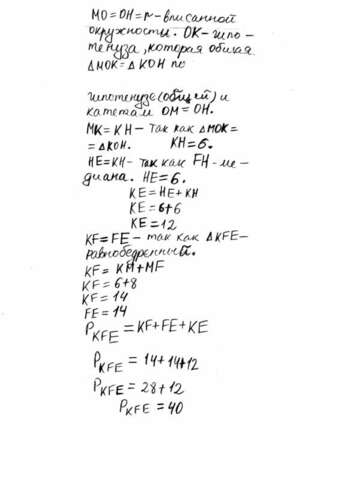 MO = OH = r - вписанной
окружности. OK - гипо-
тенуза, которая общая
ΔMOK = ΔKOH по
гипотенузе (общей) и
катетам OM = OH.
MK = KH - так как ΔMOK =
= ΔKOH. KH = 6.
HE = KH - так как FH - ме-
диана. HE = 6.
KE = HE + KH
KE = 6 + 6
KE = 12
KF = FE - так как ΔKFE -
равнобедренный.
KF = KM + MF
KF = 6 + 8
KF = 14
FE = 14
P_KFE = KF + FE + KE
P_KFE = 14 + 14 + 12
P_KFE = 28 + 12
P_KFE = 40